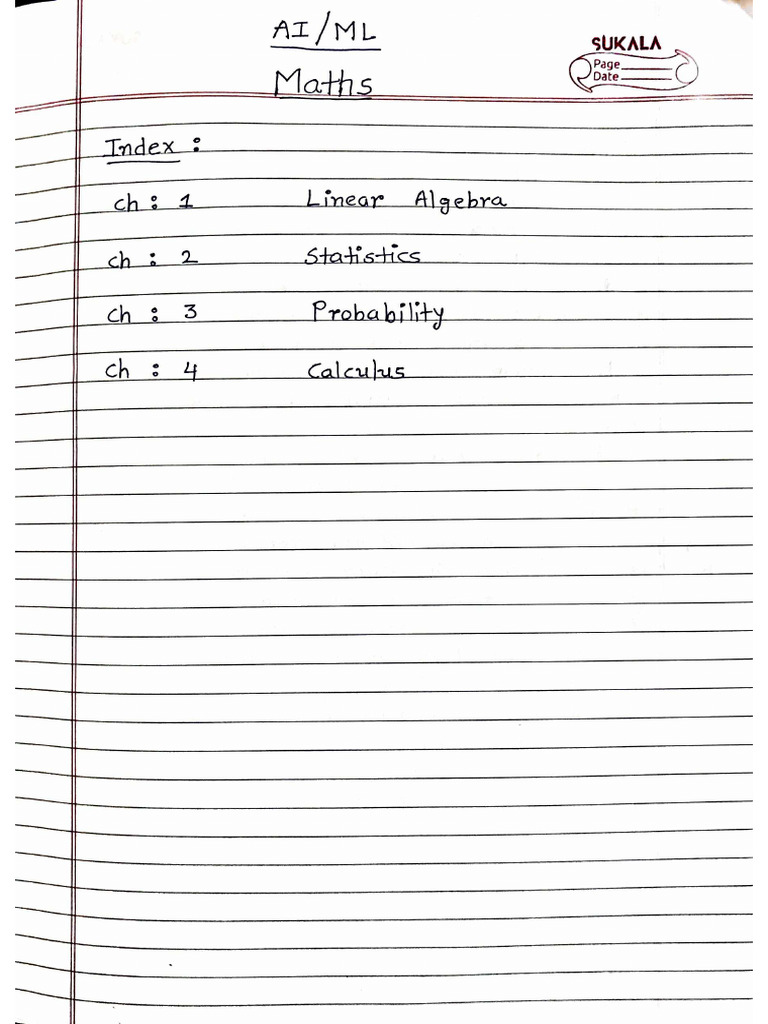 AI/ML
SUKALA
Maths
Page
Date
Index :
ch : 1 Linear Algebra
ch : 2 Statistics
ch : 3 Probability
ch : 4 Calculus